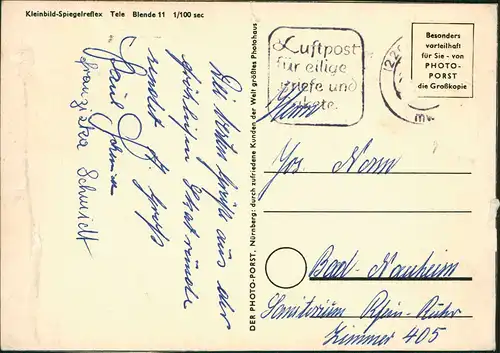 Kleinbild-Spiegelreflex Tele Blende 11 1/100 sec
Die besten Grüße aus der
fröhlichen
sendet
Paul Schmidt
Franziska Schmidt
DER PHOTO-PORST, Nürnberg: durch zufriedene Kunden der Welt größtes Photohaus
Luftpost
für eilige
Briefe und
Pakete.
(22
Besonders
vorteilhaft
für Sie - von
PHOTO-
PORST
die Großkopie
Herrn
Jos. Nonn
Bad-Nauheim
Sanitorium Rhein-Ruhr
Zimmer 405